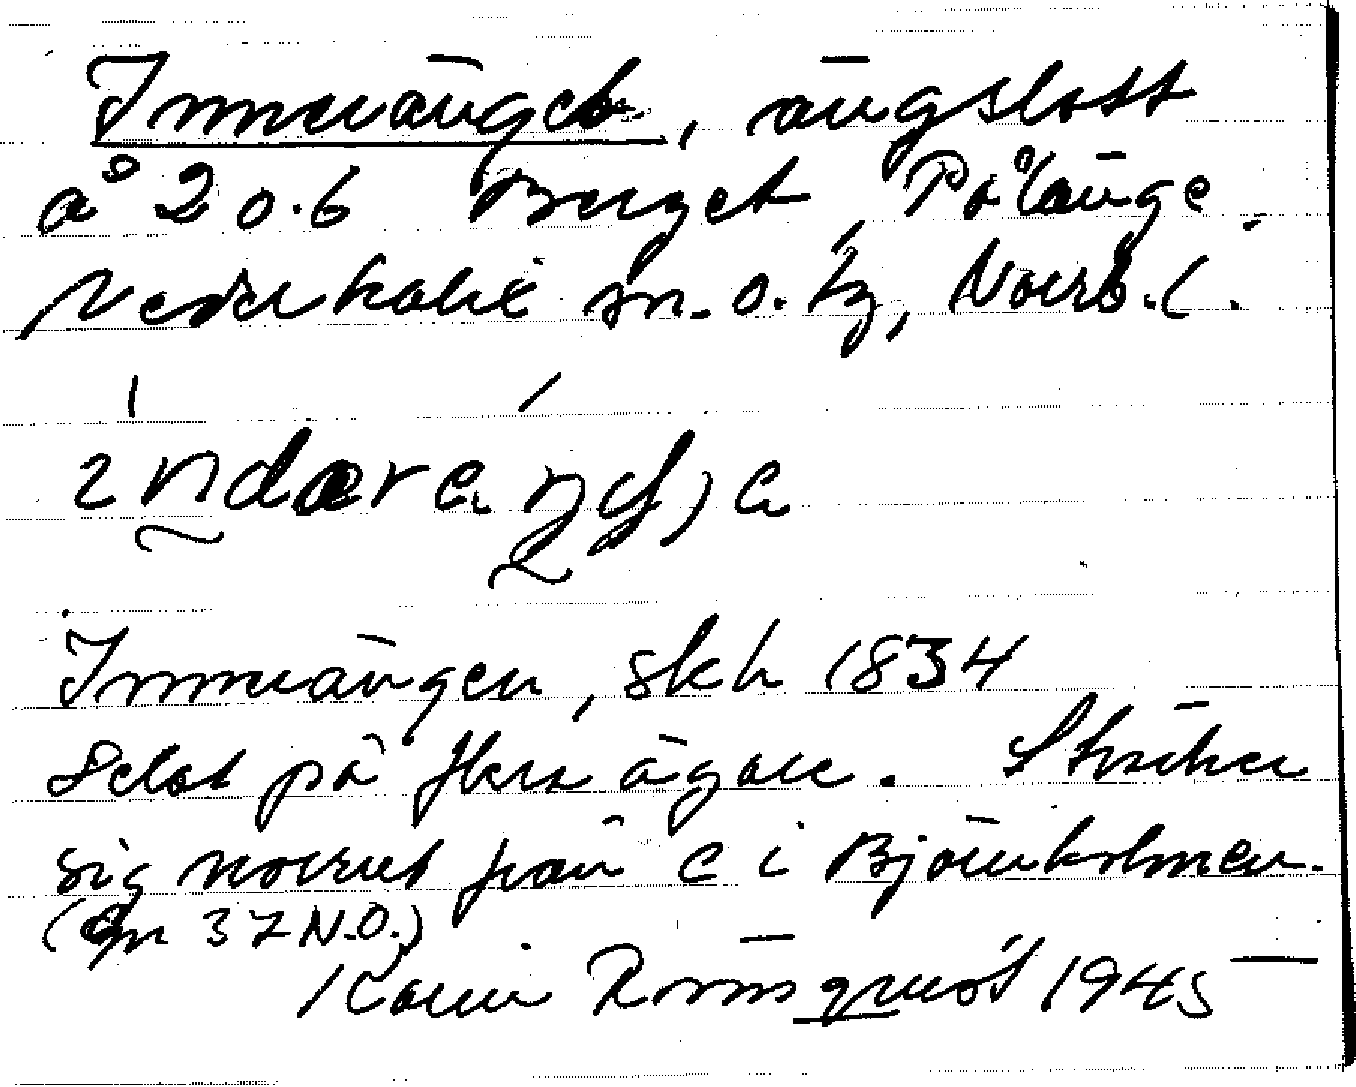 Inneränget, ängslott
å 20.6 Berget, Pålänge,
Nederkalix sn. o. tg, Norrb. l.
Innerängen, skh 1834
Delat på flera ägare. Sträcker
sig norrut från C i Björnholmen.
37 N.O.)
Karin Rönnqvist 1945